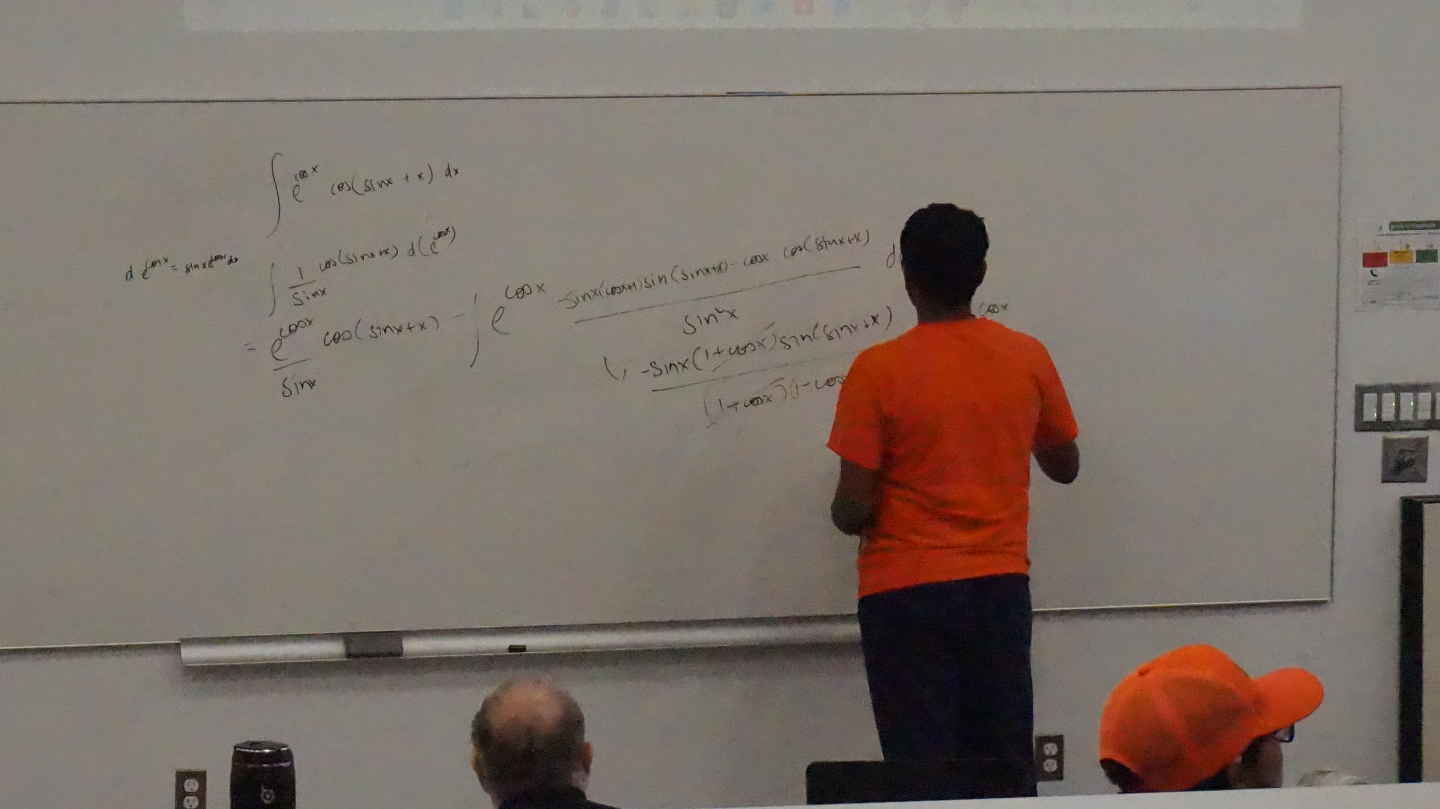 ∫ e^{cosx} cos(sinx + x) dx
d e^{cosx} = sinx e^{cosx} dx
∫ \frac{1}{sinx} cos(sinx+x) d(e^{cosx})
= \frac{e^{cosx}}{sinx} cos(sinx+x) - ∫ e^{cosx} \frac{-sinx(cosx+1)sin(sinx+x) - cosx cos(sinx+x)}{sin²x} d
\frac{-sinx(1+cosx)sin(sinx+x)}{(1+cosx)(1-cos} cosx